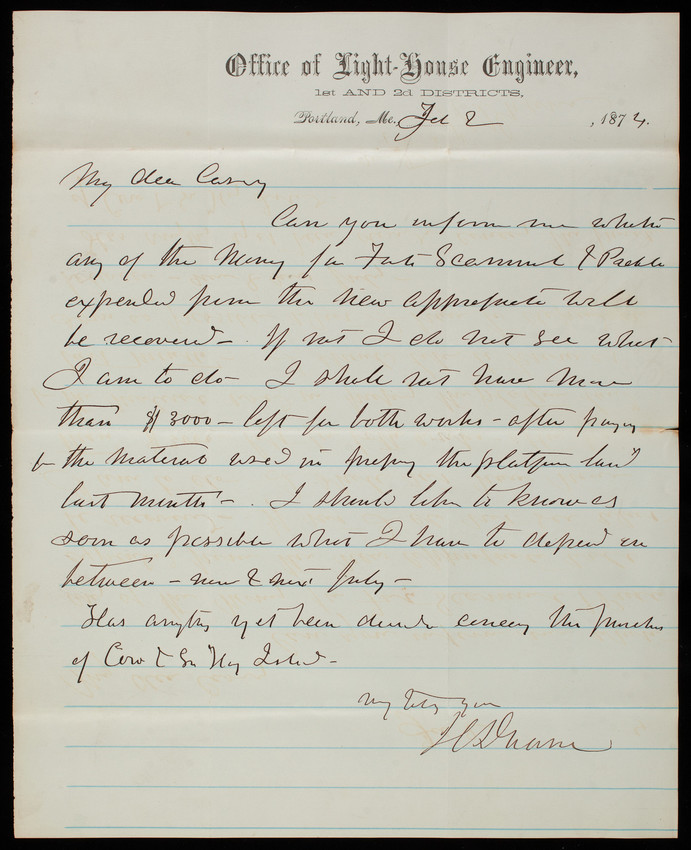 Office of Light-House Engineer,
1st AND 2d DISTRICTS,
Portland, Me. Feb 2, 1874.
My dear Casey
Can you inform me whether
any of the money for Forts Scammel & Preble
expended from the new appropriation will
be recovered - . If not I do not see what
I am to do - I shall not have more
than $3000 - left for both works - after paying
for the material used in the platforms laid
last month - . I should like to know as
soon as possible what I have to depend on
between - now & next July -
Has anything yet been decided concerning the purchase
of Cow & Island -
very truly yours
J C Duane